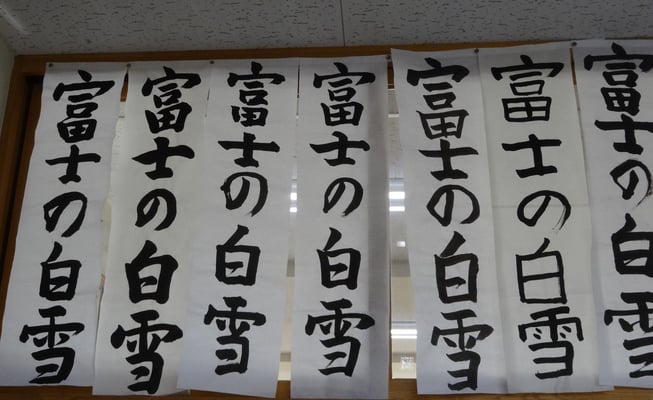 富士の白雪
富士の白雪
富士の白雪
富士の白雪
富士の白雪
富士の白雪
富士の白雪